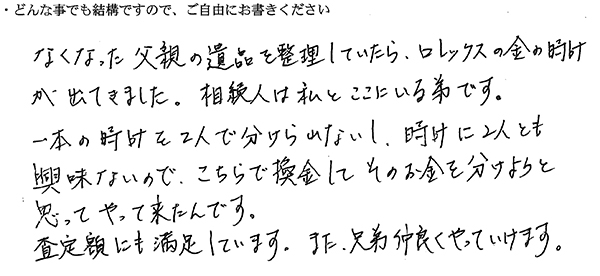 ・どんな事でも結構ですので、ご自由にお書きください
なくなった父親の遺品を整理していたら、ロレックスの金の時計
が出てきました。相続人は私とここにいる弟です。
一本の時計を2人で分けられないし、時計に2人とも
興味ないので、こちらで換金してそのお金を分けようと
思ってやって来たんです。
査定額にも満足しています。また、兄弟仲良くやっていけます。